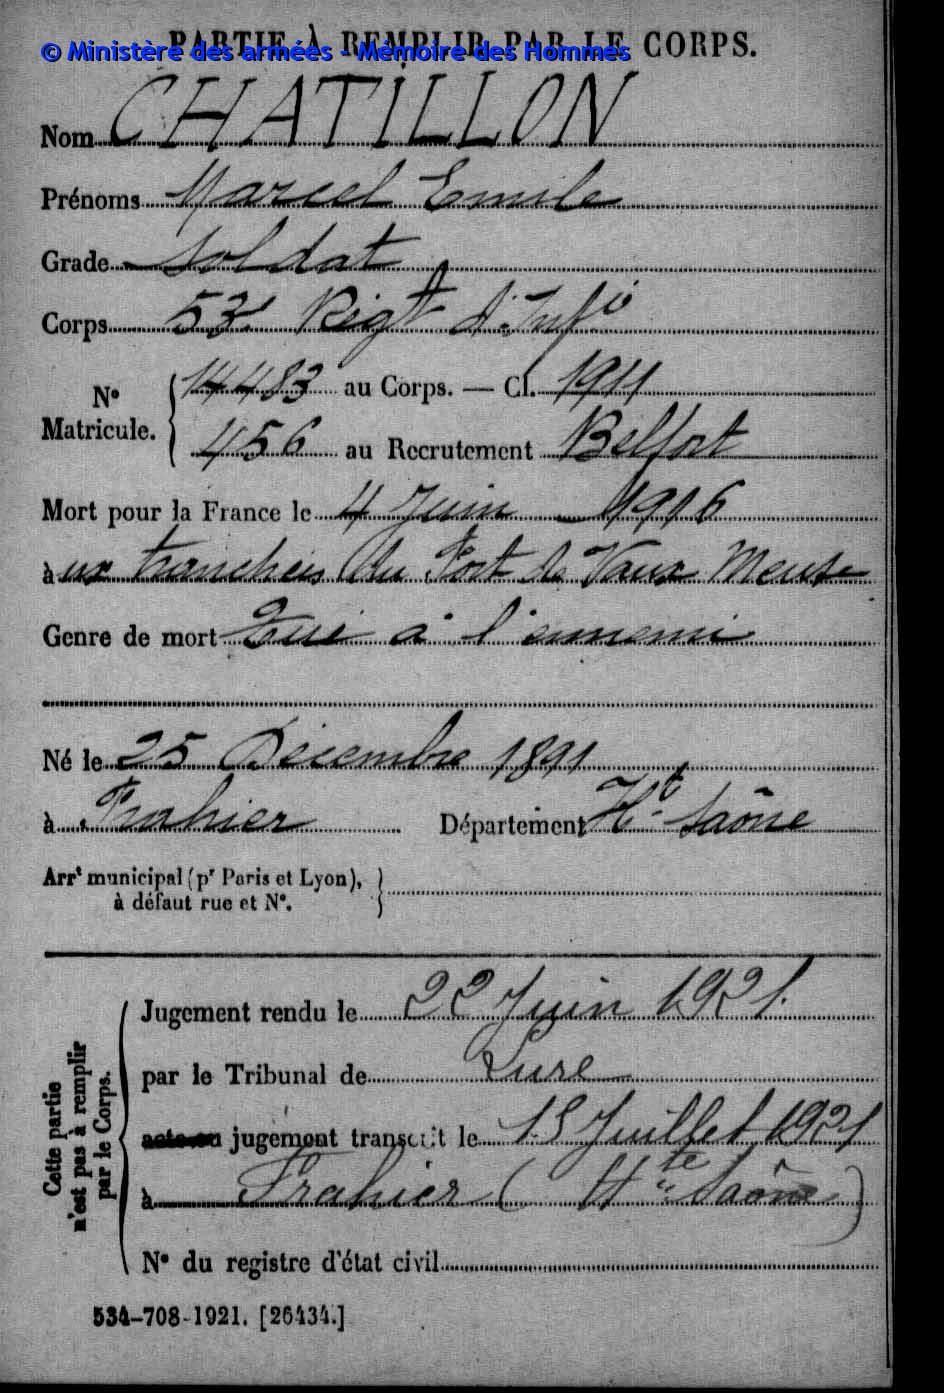 PARTIE À REMPLIR PAR LE CORPS.
© Ministère des armées - Mémoire des Hommes
Nom CHATILLON
Prénoms Marcel Emile
Grade Soldat
Corps 53e Régt d'Infie
No Matricule. { 14483 au Corps. — Cl. 1911
456 au Recrutement Belfort
Mort pour la France le 4 Juin 1916
à ux tranchées du Fort de Vaux Meuse
Genre de mort Tué à l'ennemi
Né le 25 Décembre 1891
à Frahier Département Hte Saône
Arrt municipal (pr Paris et Lyon),
à défaut rue et No.
Cette partie
n'est pas à remplir
par le Corps.
Jugement rendu le 22 Juin 1921.
par le Tribunal de Lure
acte ou jugement transcrit le 15 Juillet 1921
à Frahier (Hte Saône)
No du registre d'état civil
534-708-1921. [26434.]